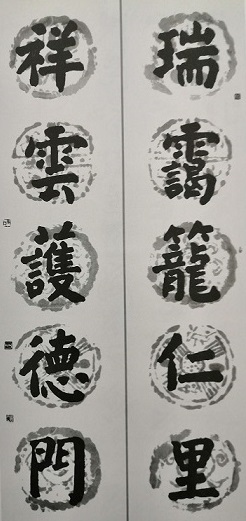 瑞靄籠仁里
祥雲護德門